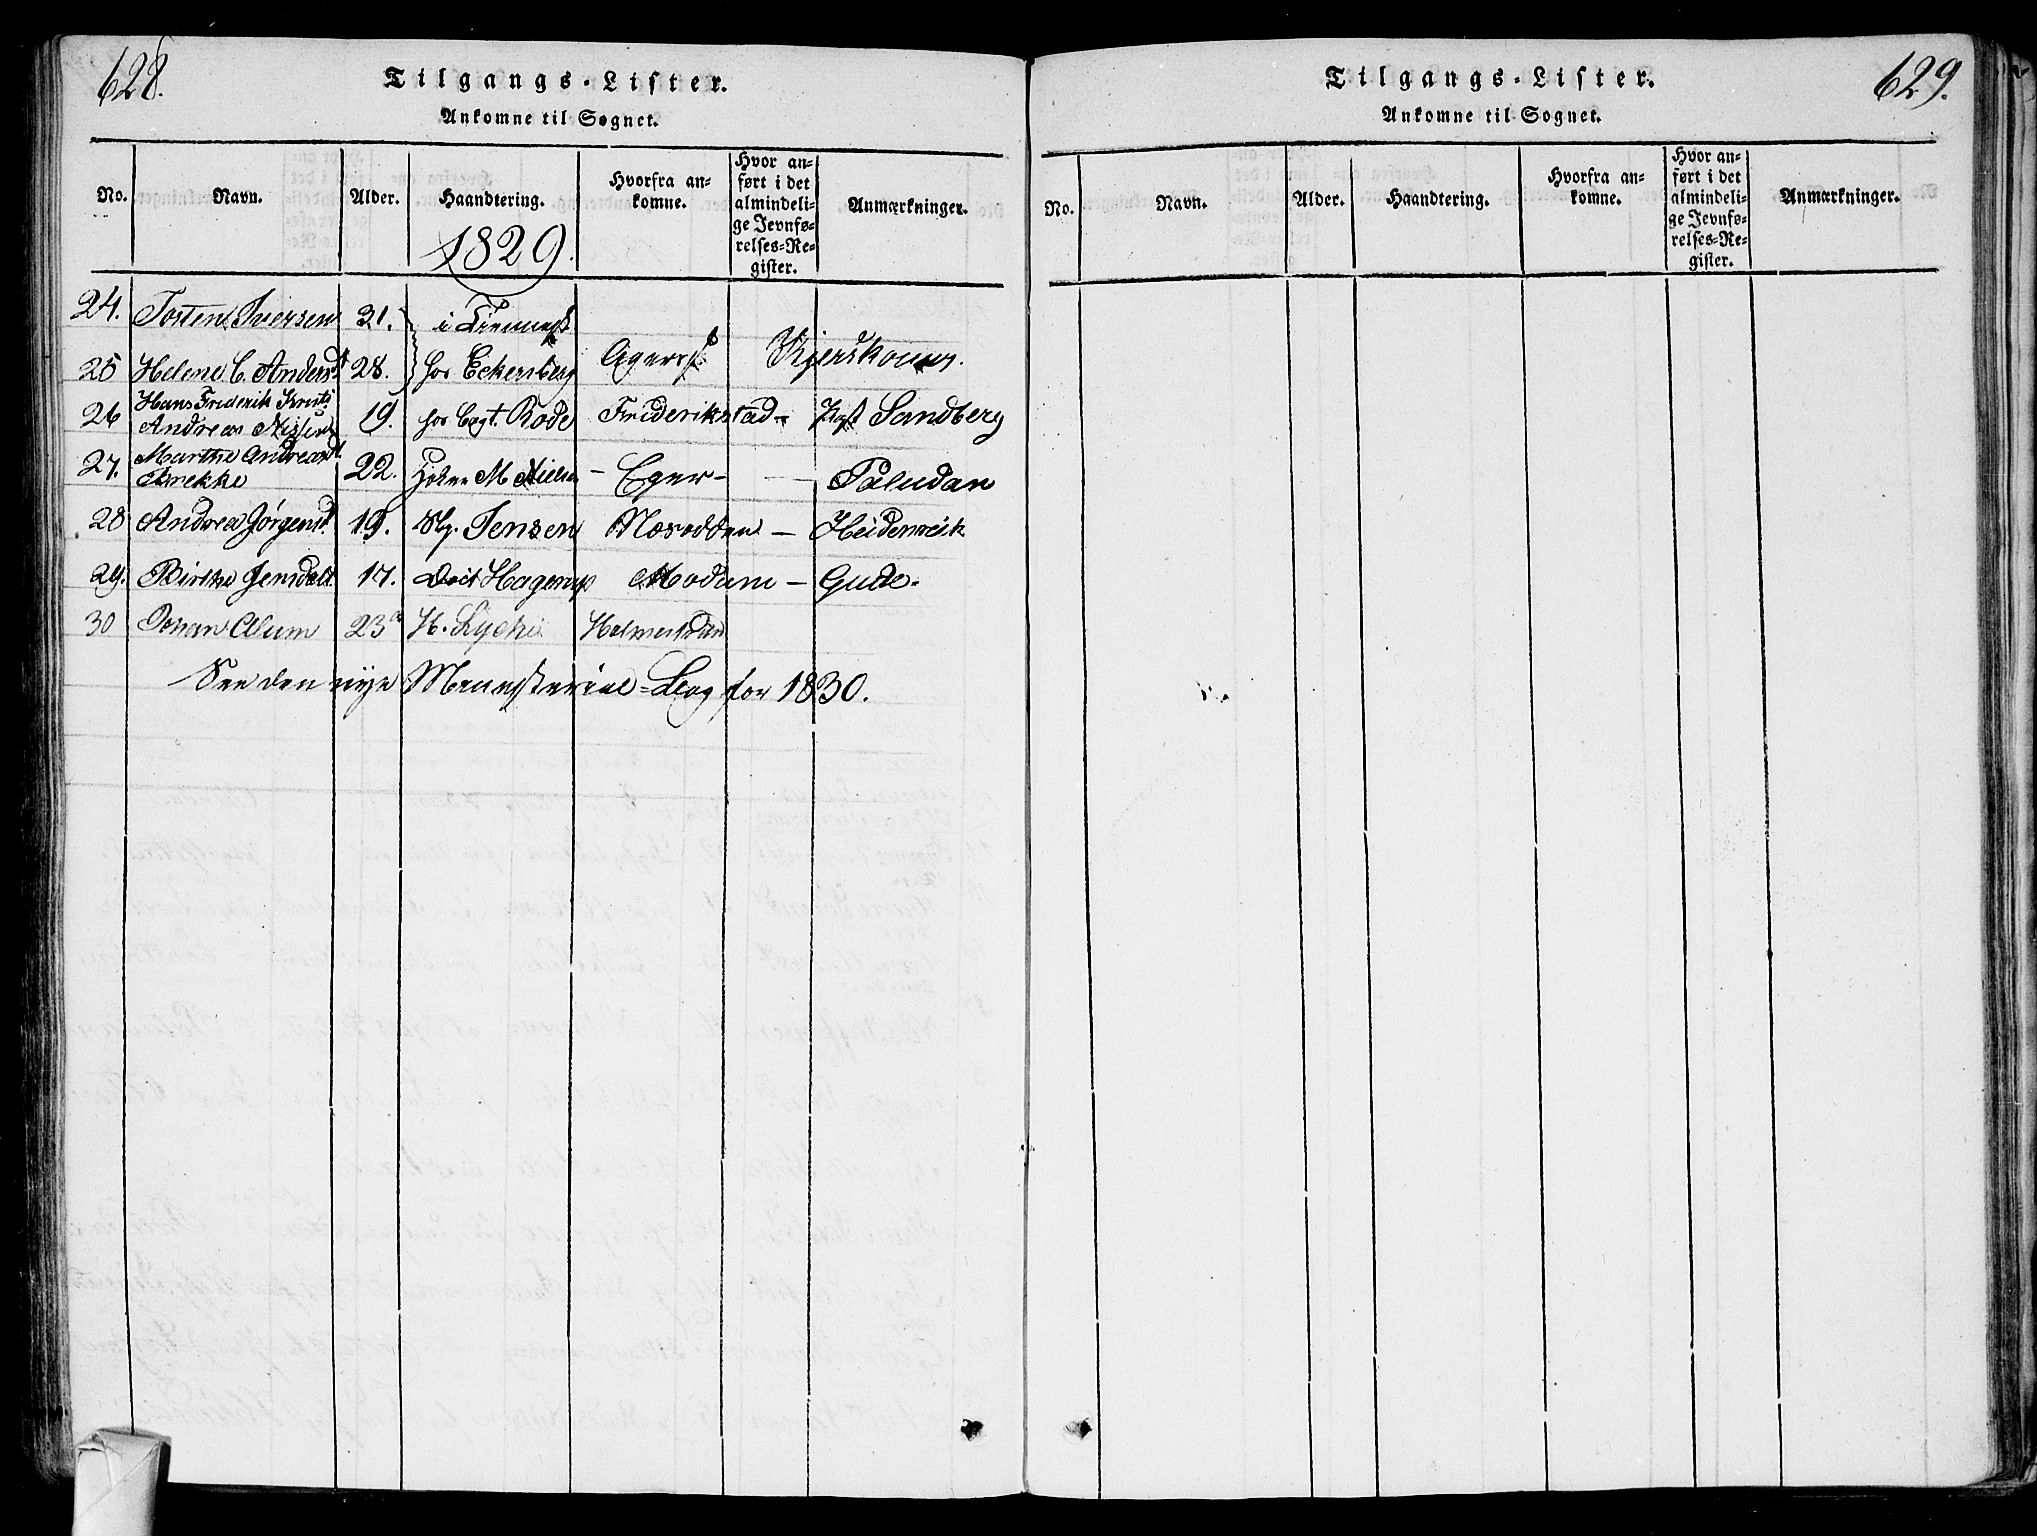 628.
Tilgangs-Lister.
Ankomne til Sognet.
No. Navn. Alder. Haandtering. Hvorfra ankomne. Hvor anført i det almindelige Jevnførelses-Register. Anmærkninger.
1829.
24. Torsten Iversen 31. i Tienneste
25 Helene C. Andersd 28. hos Eckersberg Agers
26 Hans Friderik
Andreas 19. hos Capt. Rode Friderikstad - Sandberg
27. Marthe Andreasd
22. M. Nielsen - Eger - Paludan
28 Andrea Jørgensd. 19. Jensen Næsodden - Heidenreik
29. Birthe Jensdatt 17. Hagerup Modum - Gude.
30 Johan Alum 23 H. Lyche
See den nye Ministerial-Bog for 1830.
629.
Tilgangs-Lister.
Ankomne til Sognet.
No. Navn. Alder. Haandtering. Hvorfra ankomne. Hvor anført i det almindelige Jevnførelses-Register. Anmærkninger.